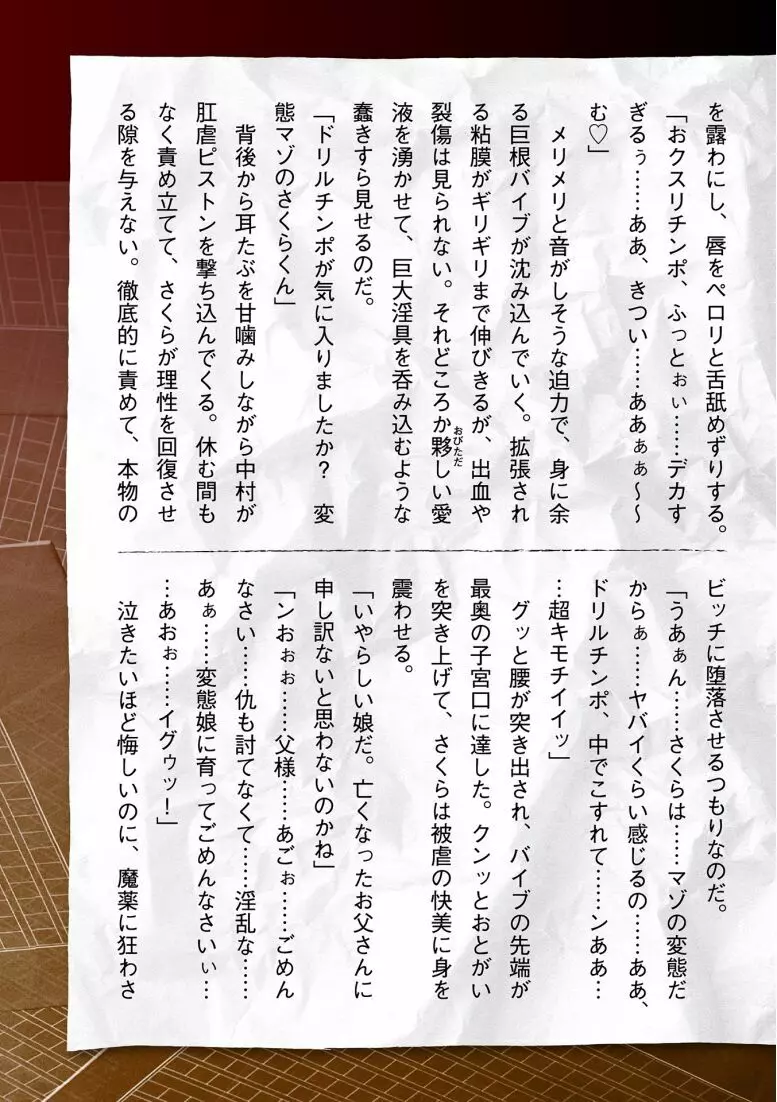 を露わにし、唇をペロリと舌舐めずりする。
「おクスリチンポ、ふっとぉぃ……デカす
ぎるぅ……ああ、きつい……ああぁぁ～～
む♡」
　メリメリと音がしそうな迫力で、身に余
る巨根バイブが沈み込んでいく。拡張され
る粘膜がギリギリまで伸びきるが、出血や
裂傷は見られない。それどころか夥しい愛
おびただ
液を湧かせて、巨大淫具を呑み込むような
蠢きすら見せるのだ。
「ドリルチンポが気に入りましたか？　変
態マゾのさくらくん」
　背後から耳たぶを甘噛みしながら中村が
肛虐ピストンを撃ち込んでくる。休む間も
なく責め立てて、さくらが理性を回復させ
る隙を与えない。徹底的に責めて、本物の
ビッチに堕落させるつもりなのだ。
「うあぁん……さくらは……マゾの変態だ
からぁ……ヤバイくらい感じるの……ああ、
ドリルチンポ、中でこすれて……ンああ…
…超キモチイイッ」
　グッと腰が突き出され、バイブの先端が
最奥の子宮口に達した。クンッとおとがい
を突き上げて、さくらは被虐の快美に身を
震わせる。
「いやらしい娘だ。亡くなったお父さんに
申し訳ないと思わないのかね」
「ンおぉぉ……父様……あごぉ……ごめん
なさい……仇も討てなくて……淫乱な……
あぁ……変態娘に育ってごめんなさいぃ…
…あおぉ……イグゥッ！」
　泣きたいほど悔しいのに、魔薬に狂わさ